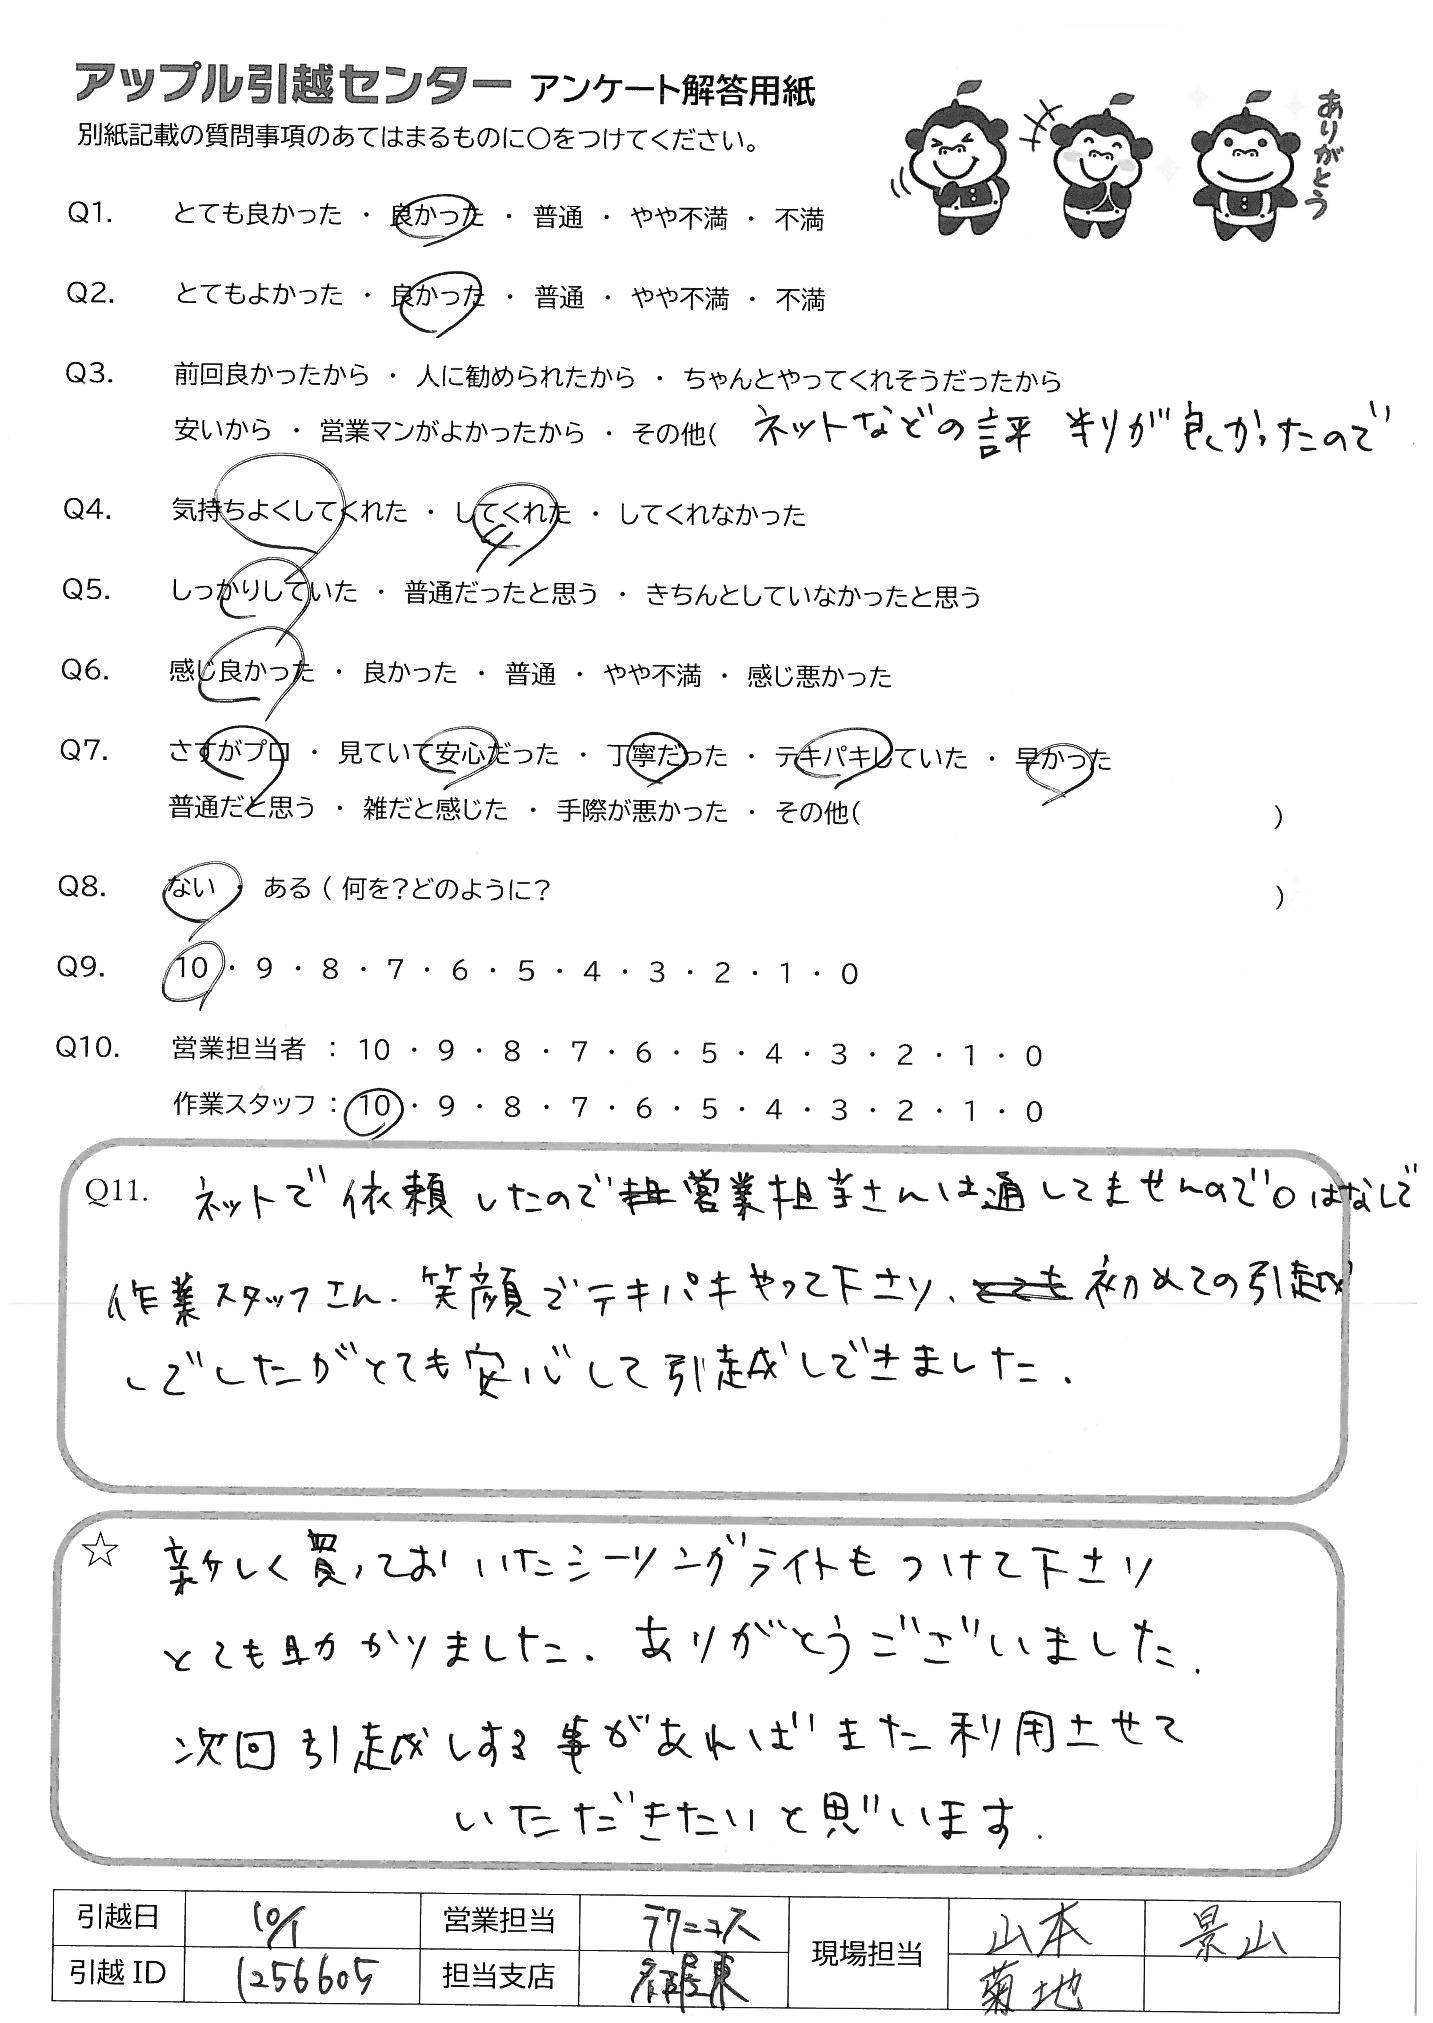 アップル引越センター アンケート解答用紙
別紙記載の質問事項のあてはまるものに○をつけてください。
ありがとう
Q1. とても良かった ・ 良かった ・ 普通 ・ やや不満 ・ 不満
Q2. とてもよかった ・ 良かった ・ 普通 ・ やや不満 ・ 不満
Q3. 前回良かったから ・ 人に勧められたから ・ ちゃんとやってくれそうだったから
安いから ・ 営業マンがよかったから ・ その他( ネットなどの評判が良かったので
Q4. 気持ちよくしてくれた ・ してくれた ・ してくれなかった
Q5. しっかりしていた ・ 普通だったと思う ・ きちんとしていなかったと思う
Q6. 感じ良かった ・ 良かった ・ 普通 ・ やや不満 ・ 感じ悪かった
Q7. さすがプロ ・ 見ていて安心だった ・ 丁寧だった ・ テキパキしていた ・ 早かった
普通だと思う ・ 雑だと感じた ・ 手際が悪かった ・ その他( )
Q8. ない ・ ある ( 何を?どのように? )
Q9. 10 ・ 9 ・ 8 ・ 7 ・ 6 ・ 5 ・ 4 ・ 3 ・ 2 ・ 1 ・ 0
Q10. 営業担当者 : 10 ・ 9 ・ 8 ・ 7 ・ 6 ・ 5 ・ 4 ・ 3 ・ 2 ・ 1 ・ 0
作業スタッフ : 10 ・ 9 ・ 8 ・ 7 ・ 6 ・ 5 ・ 4 ・ 3 ・ 2 ・ 1 ・ 0
Q11. ネットで依頼したので営業担当さんは通してませんので○はなしで
作業スタッフさん、笑顔でテキパキやって下さり、初めての引越
しでしたがとても安心して引越しできました.
☆ 新しく買っておいたシーリングライトもつけて下さり
とても助かりました. ありがとうございました.
次回引越しする事があればまた利用させて
いただきたいと思います.
引越日 10/1 営業担当 ラクニコス 現場担当 山本 景山
引越ID 1256605 担当支店 名古屋東 菊地